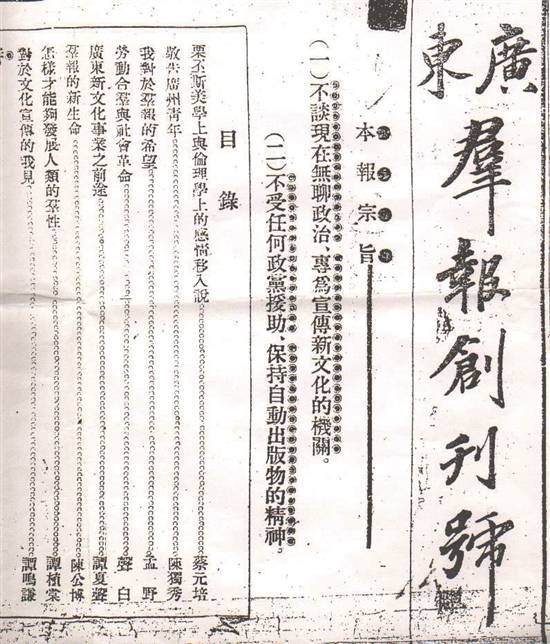 廣東
羣報創刊號
本報宗旨
(一)不談現在無聊政治、專爲宣傳新文化的機關。
(二)不受任何政黨援助、保持自動出版物的精神。
目錄
栗丕斯美學上與倫理學上的感情移入說 蔡元培
敬告廣州青年 陳獨秀
我對於羣報的希望 孟野
勞動合羣與社會革命 聲白
廣東新文化事業之前途 譚夏聲
羣報的新生命 陳公博
怎樣才能夠發展人類的羣性 譚植棠
對於文化宣傳的我見 譚鳴謙